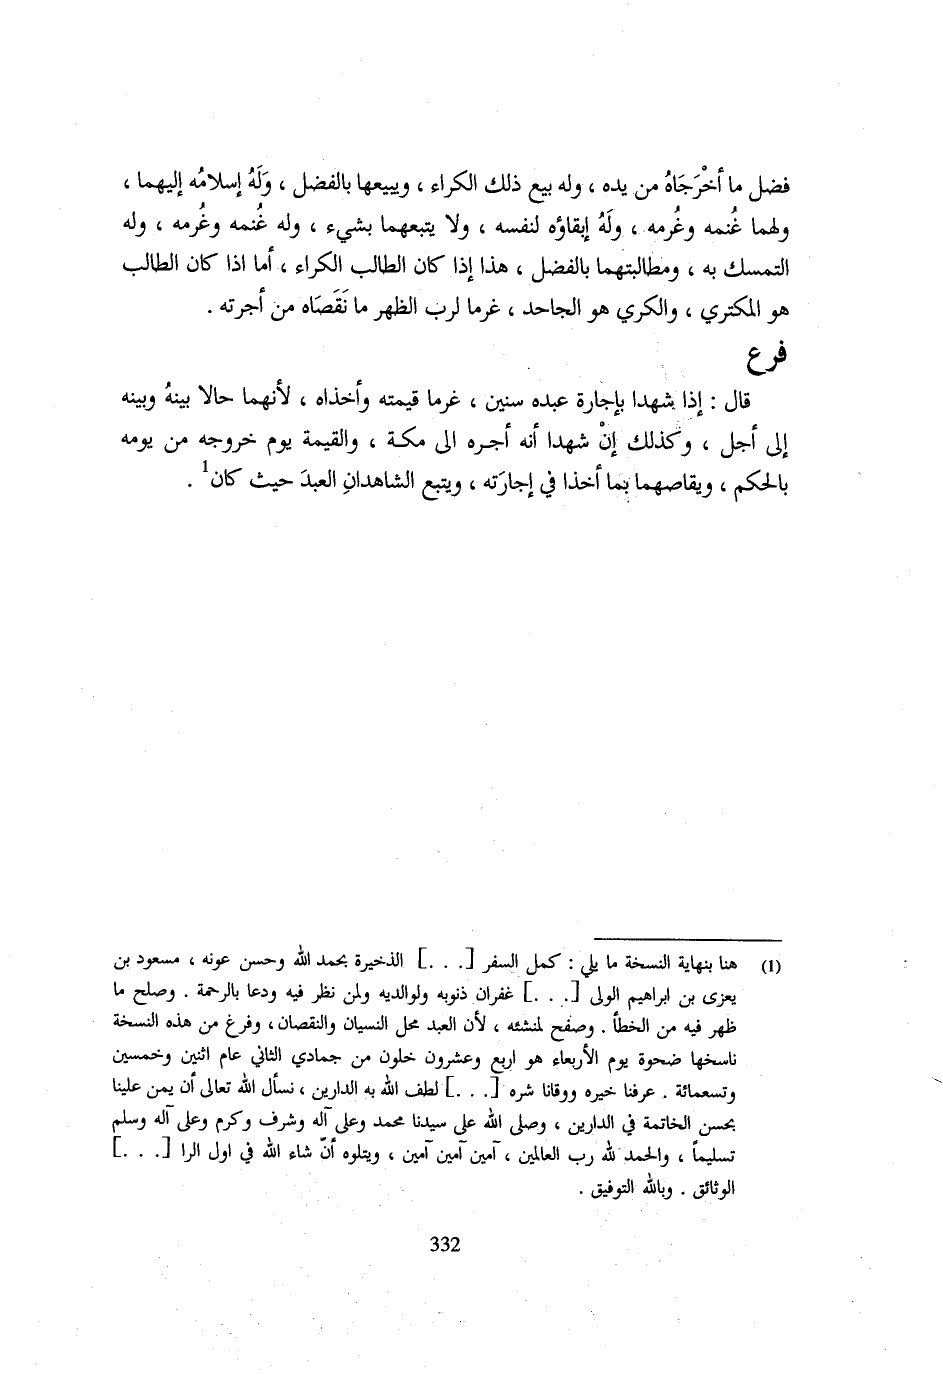 فضل ما أخْرَجَاهُ من يده ، وله بيع ذلك الكراء ، ويبيعها بالفضل ، وَلَهُ إسلامُه إليهما ،
ولهما غُنمه وغُرمه ، ولَهُ إبقاؤه لنفسه ، ولا يتبعهما بشيء ، وله غُنمه وغُرمه ، وله
التمسك به ، ومطالبتهما بالفضل ، هذا إذا كان الطالب الكراء ، أما اذا كان الطالب
هو المكتري ، والكري هو الجاحد ، غرما لرب الظهر ما نَقَصَاه من أجرته .
فرع
قال : إذا شهدا بإجارة عبده سنين ، غرما قيمته وأخذاه ، لأنهما حالا بينهُ وبينه
إلى أجل ، وكذلك إنْ شهدا أنه أجره الى مكة ، والقيمة يوم خروجه من يومه
بالحكم ، ويقاصهما بما أخذا في إجارَته ، ويتبع الشاهدانِ العبدَ حيث كان1 .
(1) هنا بنهاية النسخة ما يلي : كمل السفر [. . .] الذخيرة بحمد الله وحسن عونه ، مسعود بن
يعزى بن ابراهيم الولى [. . .] غفران ذنوبه ولوالديه ولمن نظر فيه ودعا بالرحمة . وصلح ما
ظهر فيه من الخطأ . وصفح لمنشئه ، لأن العبد محل النسيان والنقصان، وفرغ من هذه النسخة
ناسخها ضحوة يوم الأربعاء هو اربع وعشرون خلون من جمادي الثاني عام اثنين وخمسين
وتسعمائة . عرفنا خيره ووقانا شره [. . .] لطف الله به الدارين ، نسأل الله تعالى أن يمن علينا
بحسن الخاتمة في الدارين ، وصلى الله على سيدنا محمد وعلى آله وشرف وكرم وعلى آله وسلم
تسليماً ، والحمد لله رب العالمين ، آمين آمين آمين ، ويتلوه أنّ شاء الله في اول الرا [. . .]
الوثائق . وبالله التوفيق .
332